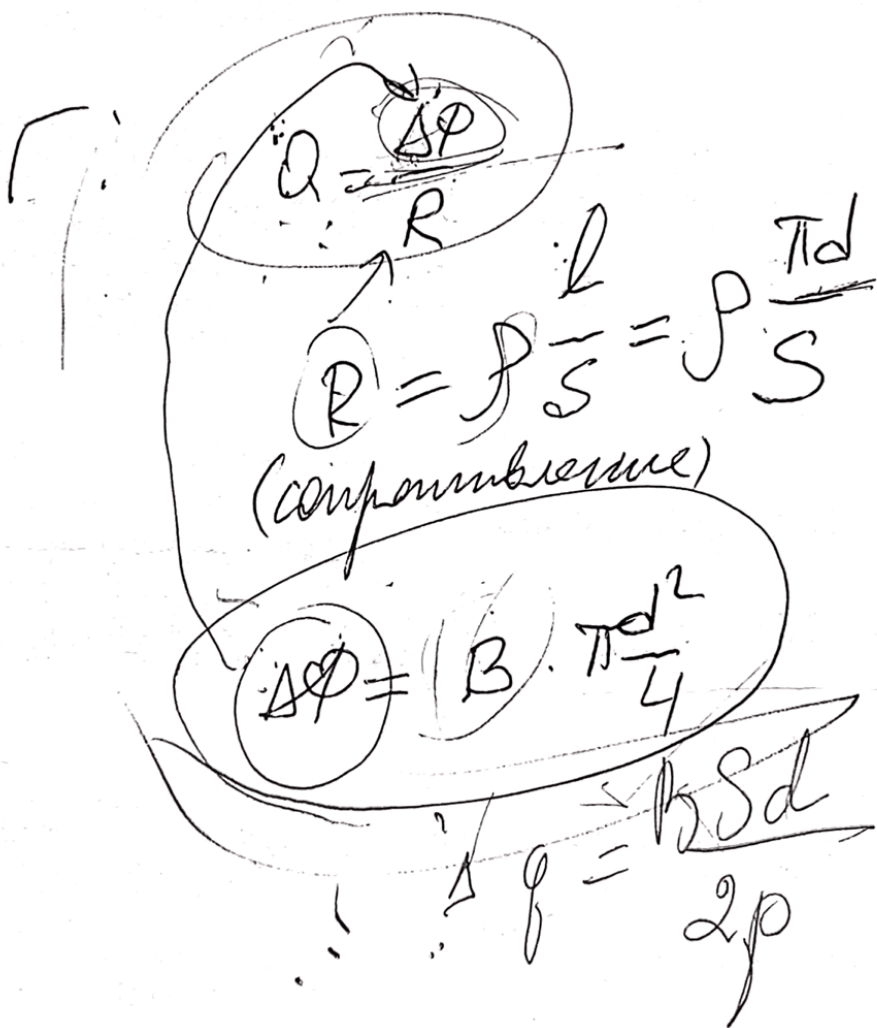 Q = ΔΦ / R
R = ρ l/S = ρ πd/S
(сопротивление)
ΔΦ = B · π d²/4
Δq = BSd / 2ρ